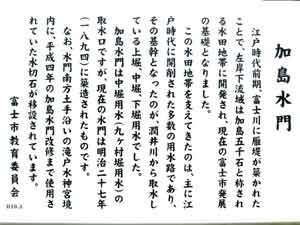 加島水門
江戸時代前期、富士川に雁堤が築かれた
ことで、左岸下流域は加島五千石と称され
る水田地帯に開発され、現在の富士市発展
の基礎となりました。
この水田地帯を支えてきたのは、主に江
戸時代に開削された多数の用水路であり、
その基幹となったのが、潤井川から取水し
ている上堀、中堀、下堀用水でした。
加島水門は中堀用水(九ヶ村堀用水)の
取水口ですが、現在の水門は明治二十七年
(一八九四)に築造されたものです。
なお、水門南方土手沿いの滝戸水神宮境
内に、平成四年の加島水門改修まで使用さ
れていた水切石が移設されています。
富士市教育委員会
H19.3